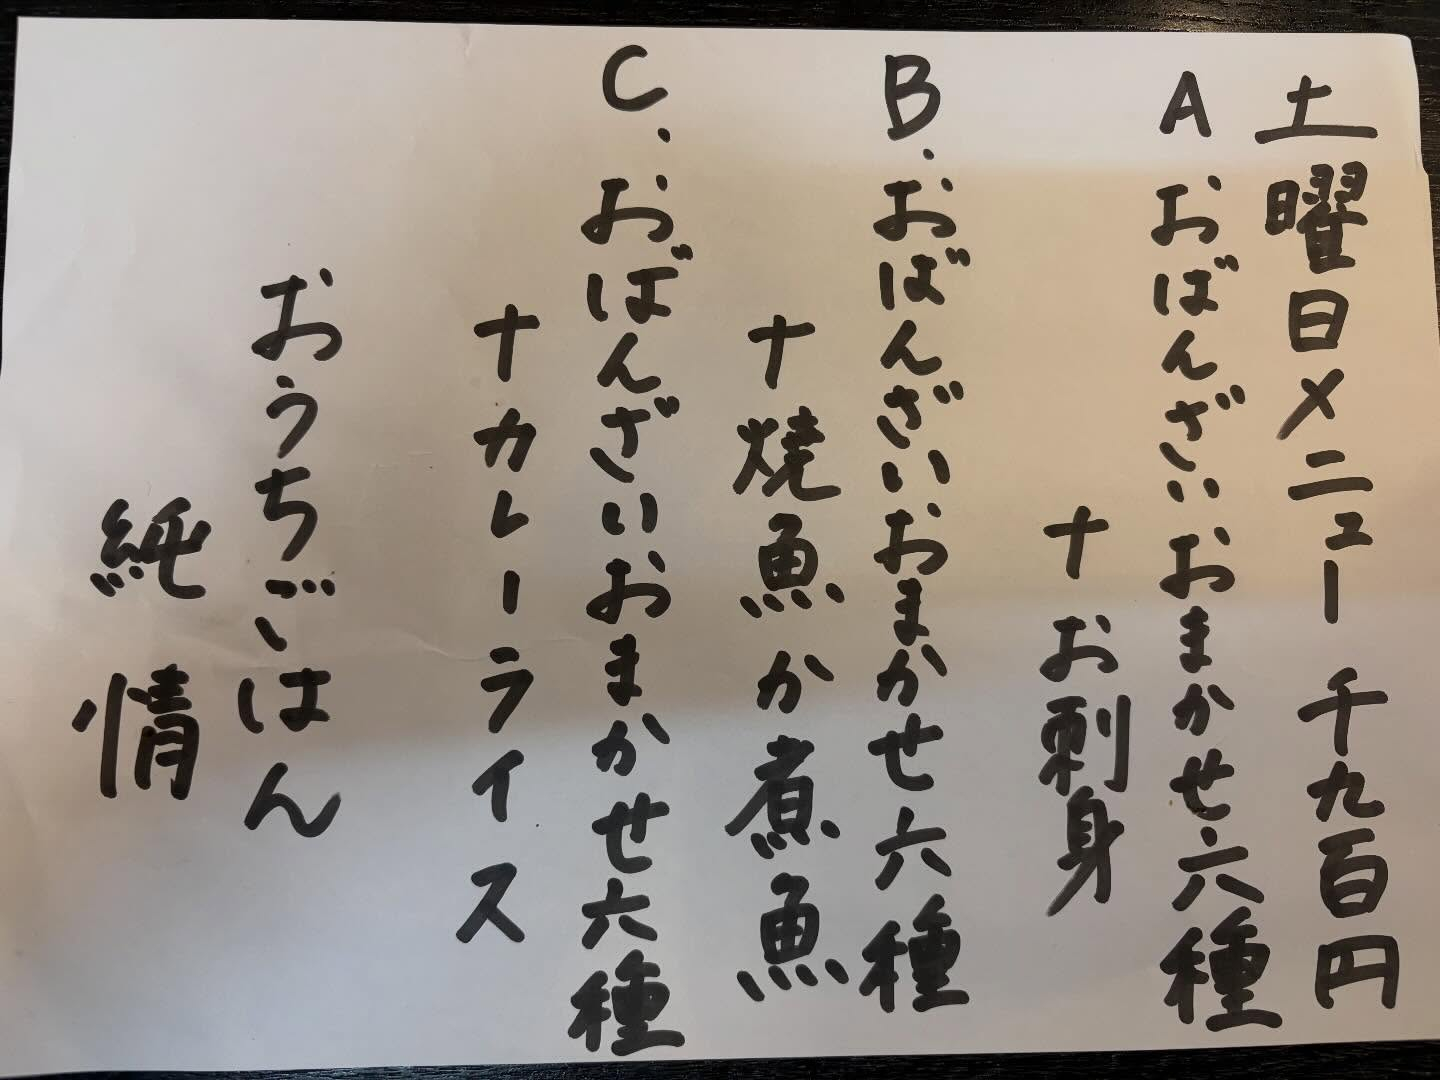 土曜日メニュー 千九百円
A おばんざいおまかせ六種
+お刺身
B.おばんざいおまかせ六種
+焼魚か煮魚
C.おばんざいおまかせ六種
+カレーライス
おうちごはん
純情